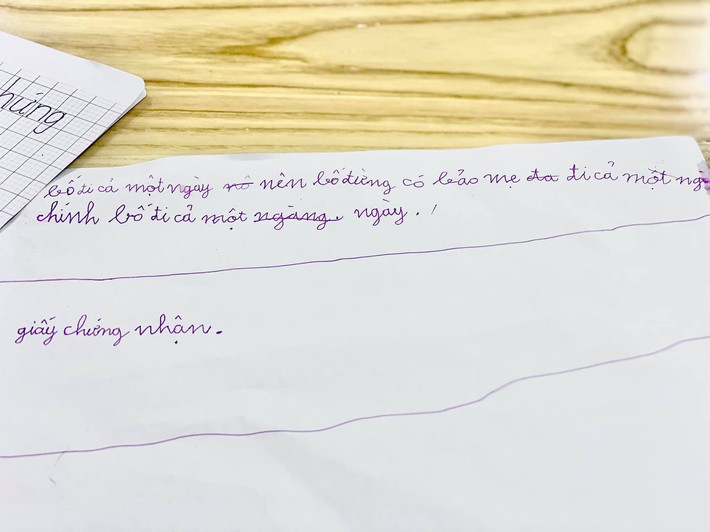 hứng
bố đi cả một ngày nô nên bố điềng có bảo mẹ đa đi cả một ngà
chính bố đi cả một ngàng, ngày. /
giấy chứng nhận.